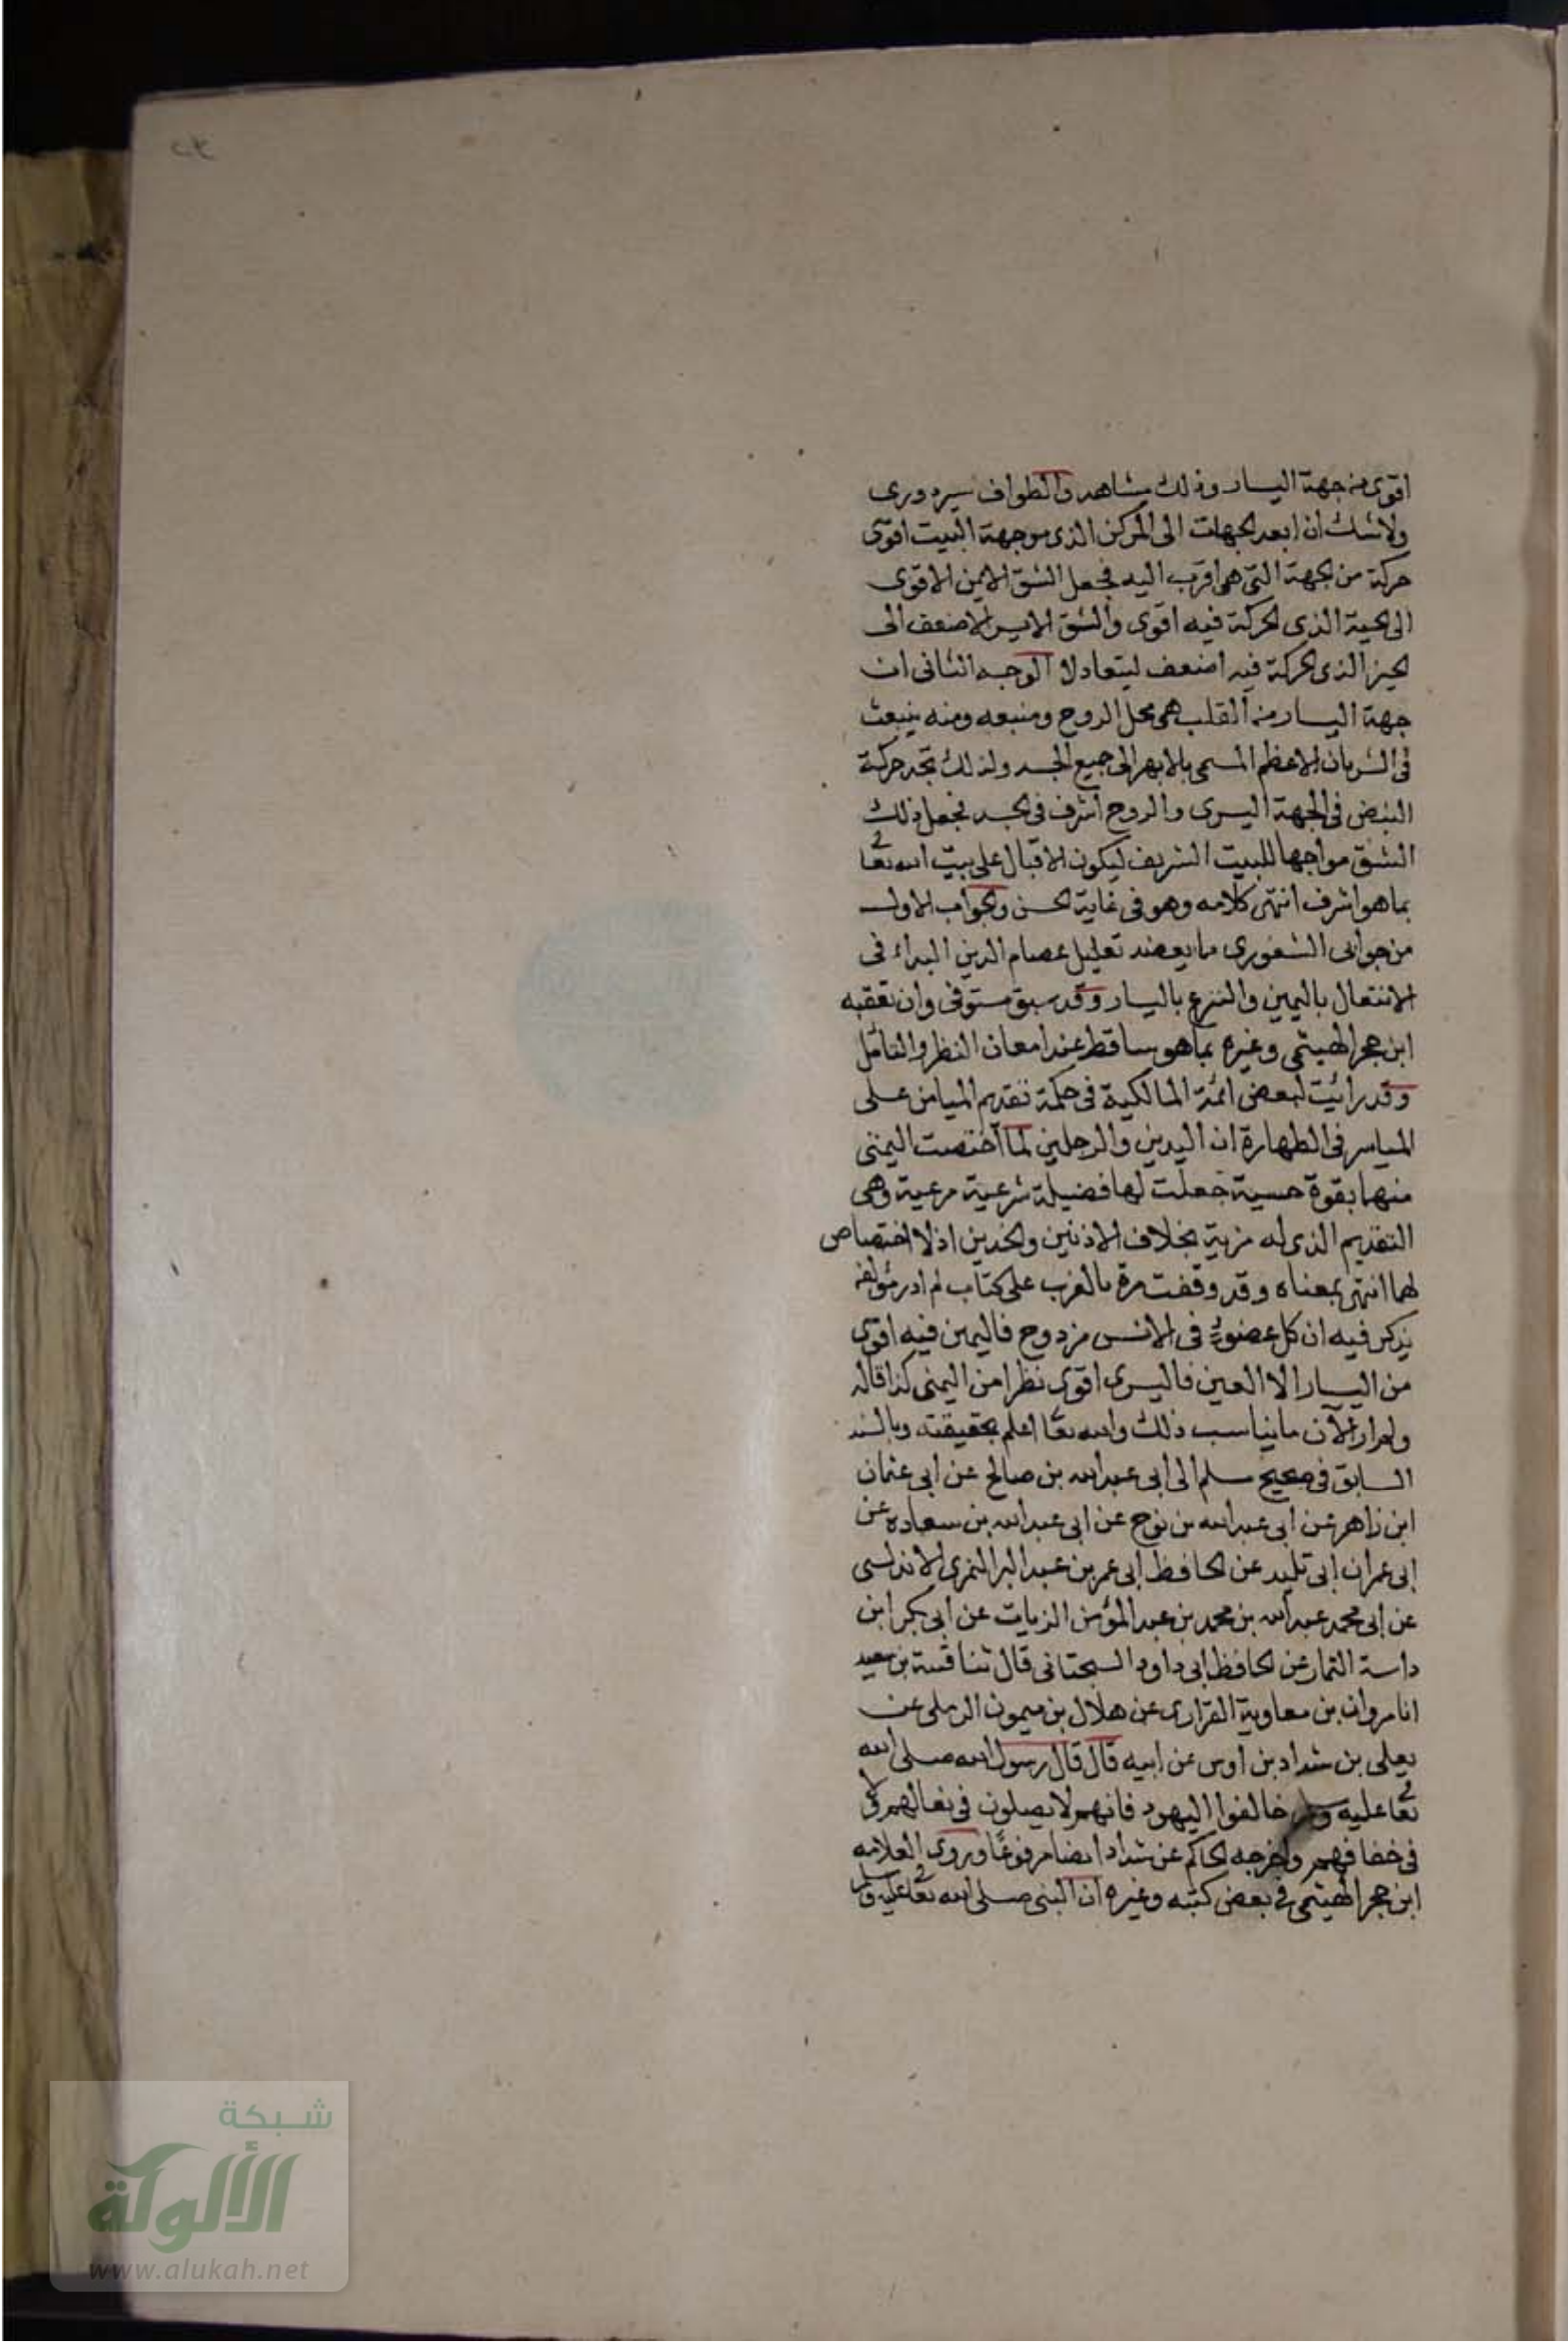 اقوى من جهة اليسار وذلك مشاهد والطواف سير دورى
ولا شك ان ابعد الجهات الى المركز الذى هو جهة البيت اقوى
حركة من الجهة التى هى اقرب اليه فجعل الشق الايمن الاقوى
الى الحية الذى الحركة فيه اقوى والشق الايسر الاضعف الى
الحيز الذى الحركة فيه اضعف ليتعادلا الوجه الثانى ان
جهة اليسار من القلب هى محل الروح ومنبعه ومنه ينبعث
فى الشريان الاعظم المسمى بالابهر الى جميع الجسد ولذلك تجد حركة
النبض فى الجهة اليسرى والروح اشرف فى الجسد فجعل ذلك
الشق مواجها للبيت الشريف ليكون الاقبال على بيت الله تعا
بما هو اشرف انتهى كلامه وهو فى غاية الحسن والجواب الاول
من جوابى الشغورى مما يعضد تعليل عصام الدين البداء فى
الانتعال باليمين والنزع باليسار وقد سبق مستوفى وان تعقبه
ابن حجر الهيثمى وغيره بما هو ساقط عند امعان النظر والتامل
وقد رائيت لبعض ائمة المالكية فى حكمة تقديم الميامن على
المياسر فى الطهارة ان اليدين والرجلين لما اختصت اليمنى
منهما بقوة حسية جعلت لها فضيلة شرعية مرعية وهى
التقديم الذى له مزية بخلاف الاذنين والخدين اذ لا اختصاص
لهما انتهى بمعناه وقد وقفت مرة بالغرب على كتاب لم ادر مؤلفه
يذكر فيه ان كل عضو فى الانس مزدوج فاليمين فيه اقوى
من اليسار الا العين فاليسرى اقوى نظرا من اليمنى كذا قاله
ولم ار الآن ما يناسب ذلك والله تعا اعلم بحقيقته وبالسند
السابق فى صحيح مسلم الى ابى عبد الله بن صالح عن ابى عثمان
ابن زاهر عن ابى عبد الله بن نوح عن ابى عبد الله بن سعاده عن
ابى عمران ابى تليد عن الحافظ ابى عمر بن عبد البر النمرى الاندلسى
عن ابى محمد عبد الله بن محمد بن عبد المؤمن الزيات عن ابى بكر ابن
داسة التمار عن الحافظ ابى داود السجستانى قال ثنا قتيبة بن سعيد
انا مروان بن معاوية الفزارى عن هلال بن ميمون الرملى عن
يعلى بن شداد بن اوس عن ابيه قال قال رسول الله صلى الله
تعا عليه وسلم خالفوا اليهود فانهم لا يصلون فى نعالهم ولا
فى خفافهم واخرجه الحاكم عن شداد ايضا مرفوعًا وروى العلامه
ابن حجر الهيثمى فى بعض كتبه وغيره ان النبى صلى الله تعا عليه وسلم
شبكة
الألوكة
www.alukah.net